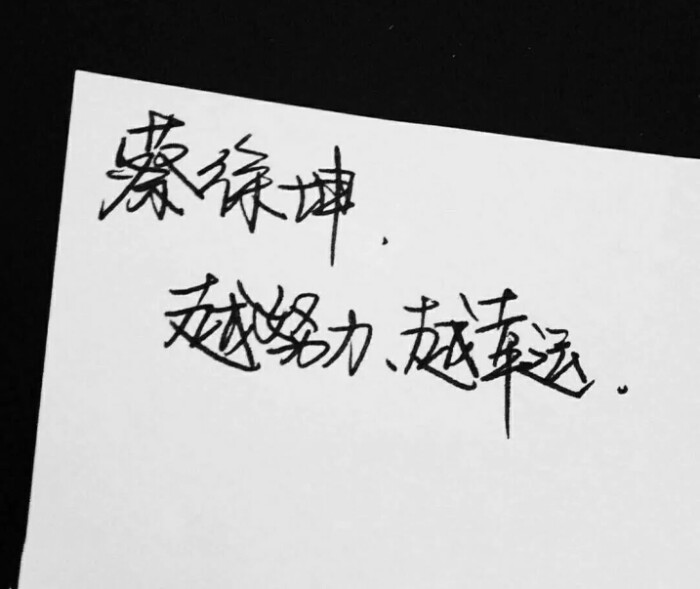 蔡徐坤.
越努力、越幸运.